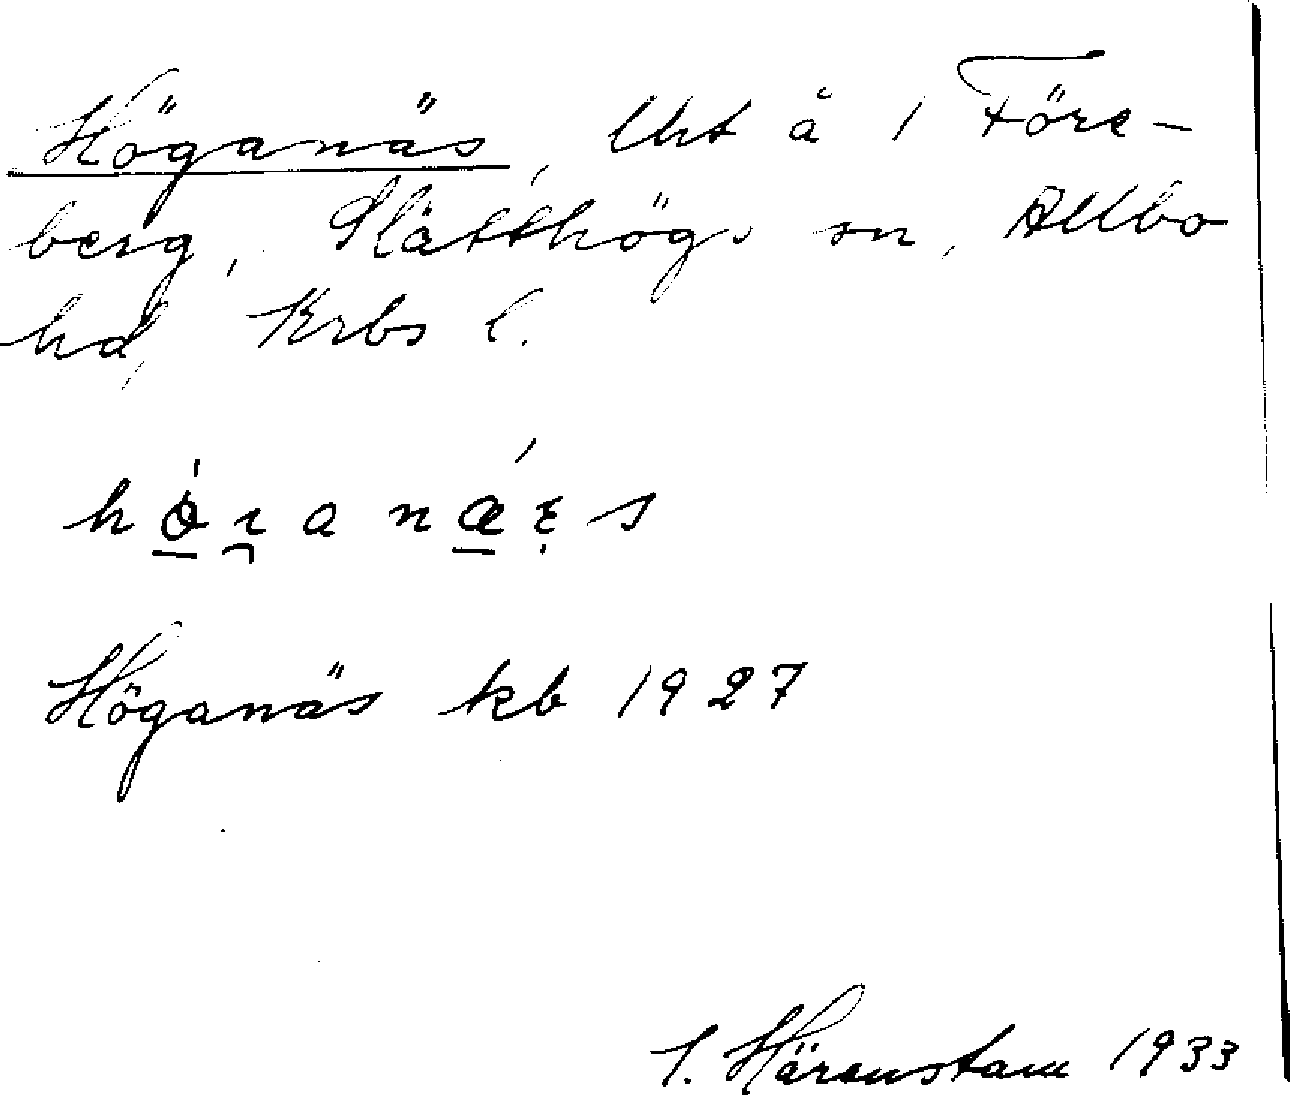 Höganäs, lht å 1 Före-
berg, Slätthögs sn, Allbo
hd, Krbs l.
Höganäs kb 1927
I. Härenstam 1933